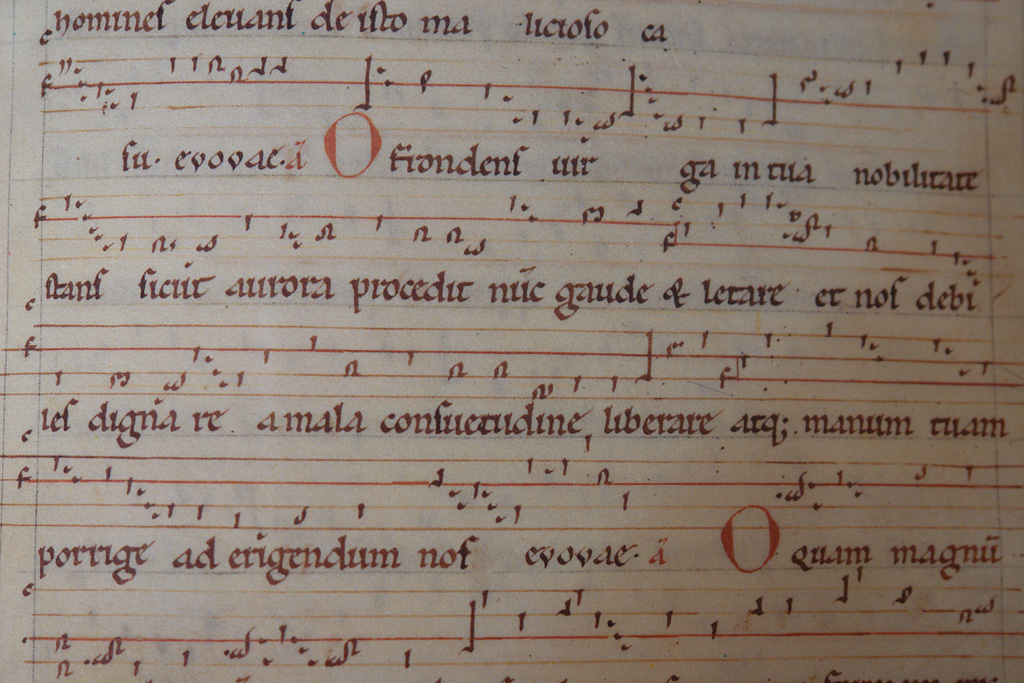 homines elevans de isto ma licioso ca
su. evovae. a O frondens vir ga in tua nobilitate
stans sicut aurora procedit nūc gaude & letare et nos debi
les digna re a mala consuetudine liberare atq; manum tuam
porrige ad erigendum nos evovae. a O quam magnū